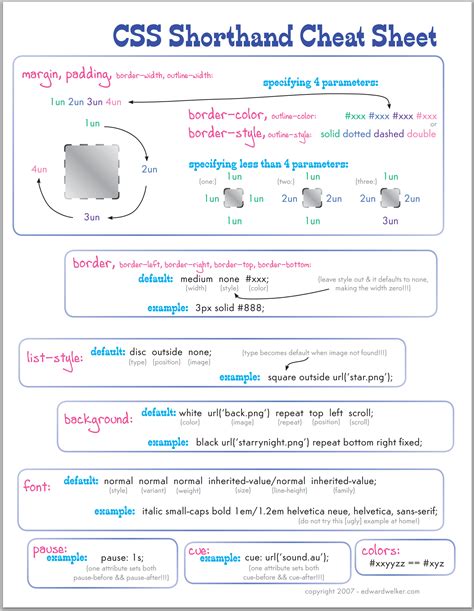 CSS Shorthand Cheat Sheet
margin, padding, border-width, outline-width:
specifying 4 parameters:
1un 2un 3un 4un
border-color, outline-color: #xxx #xxx #xxx #xxx
or
border-style, outline-style: solid dotted dashed double
1un
4un 2un
3un
specifying less than 4 parameters:
(one:) 1un (two:) 1un (three:) 1un
1un 1un 2un 2un 2un 2un
1un 1un 3un
border, border-left, border-right, border-top, border-bottom:
default: medium none #xxx;
(width) (style) (color)
(leave style out & it defaults to none,
making the width zero!!!)
example: 3px solid #888;
list-style: default: disc outside none;
(type) (position) (image)
(type becomes default when image not found!!!)
example: square outside url('star.png');
background: default: white url('back.png') repeat top left scroll;
(color) (image) (repeat) (position) (scroll)
example: black url('starrynight.png') repeat bottom right fixed;
font: default: normal normal normal inherited-value/normal inherited-value;
(style) (variant) (weight) (size) (line-height) (family)
example: italic small-caps bold 1em/1.2em helvetica neue, helvetica, sans-serif;
(do not try this [ugly] example at home!)
pause:
example: pause: 1s;
(one attribute sets both
pause-before && pause-after!!!)
cue:
example: cue: url('sound.au');
(one attribute sets both
cue-before && cue-after!!!)
colors:
#xxyyzz == #xyz
copyright 2007 - edwardwelker.com